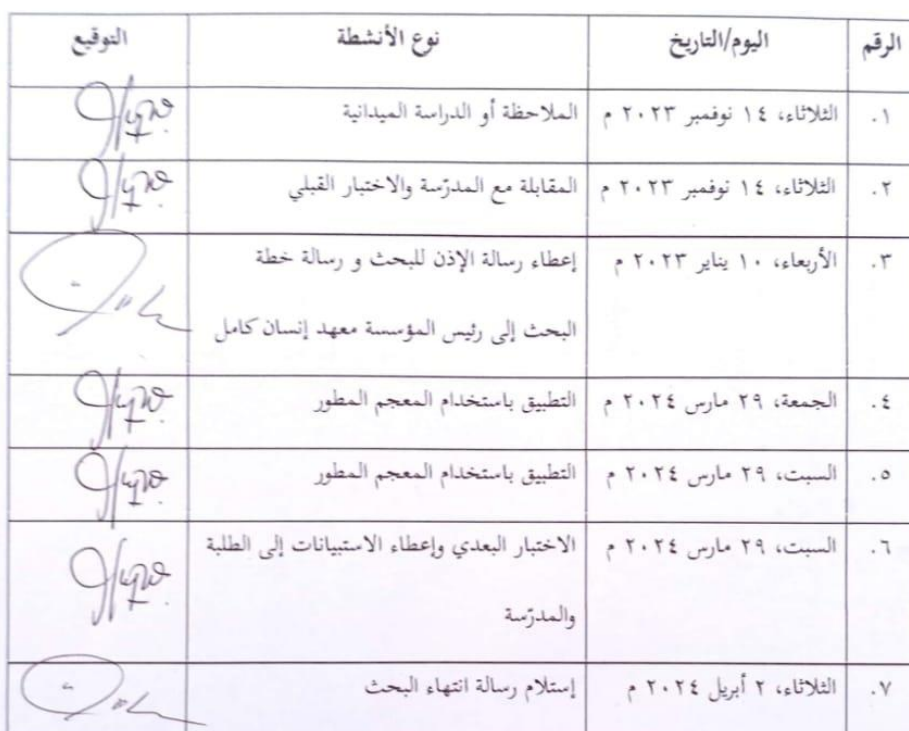 الرقم اليوم/التاريخ نوع الأنشطة التوقيع
١. الثلاثاء، ١٤ نوفمبر ٢٠٢٣ م الملاحظة أو الدراسة الميدانية
٢. الثلاثاء، ١٤ نوفمبر ٢٠٢٣ م المقابلة مع المدرّسة والاختبار القبلي
٣. الأربعاء، ١٠ يناير ٢٠٢٣ م إعطاء رسالة الإذن للبحث و رسالة خطة
البحث إلى رئيس المؤسسة معهد إنسان كامل
٤. الجمعة، ٢٩ مارس ٢٠٢٤ م التطبيق باستخدام المعجم المطور
٥. السبت، ٢٩ مارس ٢٠٢٤ م التطبيق باستخدام المعجم المطور
٦. السبت، ٢٩ مارس ٢٠٢٤ م الاختبار البعدي وإعطاء الاستبيانات إلى الطلبة
والمدرّسة
٧. الثلاثاء، ٢ أبريل ٢٠٢٤ م إستلام رسالة انتهاء البحث